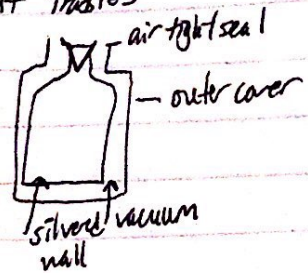 air tight seal
outer cover
silvered vacuum
wall